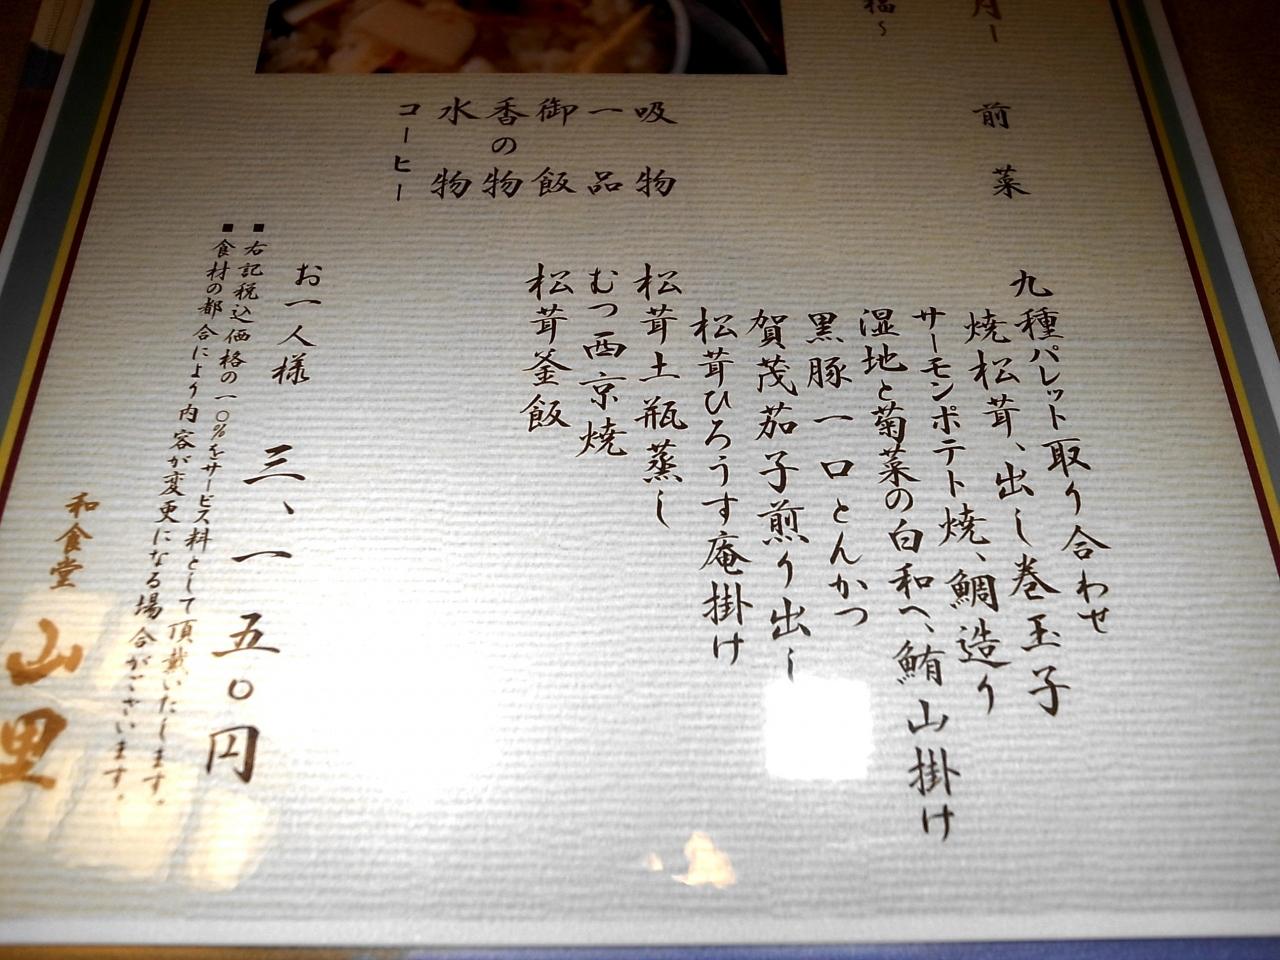 月ー
福～
前菜
九種パレット取り合わせ
焼松茸、出し巻玉子
サーモンポテト焼、鯛造り
湿地と菊菜の白和へ、鮪山掛け
黒豚一口とんかつ
賀茂茄子煎り出し
松茸ひろうす庵掛け
吸物 松茸土瓶蒸し
一品 むつ西京焼
御飯 松茸釜飯
香の物
水物
コーヒー
お一人様 三、一五〇円
■右記税込価格の一〇%をサービス料として頂戴いたします。
■食材の都合により内容が変更になる場合がございます。
和食堂 山里